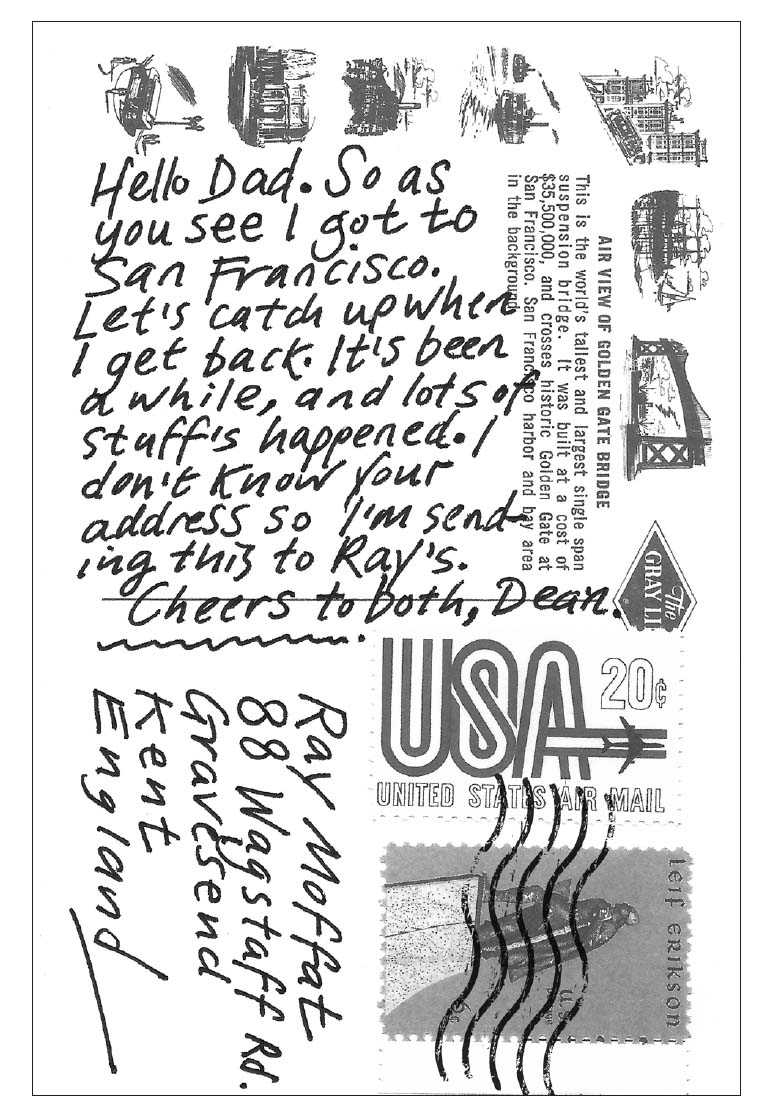 Hello Dad. So as
you see I got to
San Francisco.
Let's catch up when
I get back. It's been
a while, and lots of
stuff's happened. I
don't know your
address so I'm send-
ing this to Ray's.
Cheers to both, Dean.
AIR VIEW OF GOLDEN GATE BRIDGE
This is the world's tallest and largest single span
suspension bridge. It was built at a cost of
$35,500,000, and crosses historic Golden Gate at
San Francisco. San Francisco harbor and bay area
in the background.
The
GRAY LI
USA 20¢
UNITED STATES AIR MAIL
Leif Erikson
U.S.
6c
Ray Moffat
88 Wagstaff Rd.
Gravesend
Kent
England